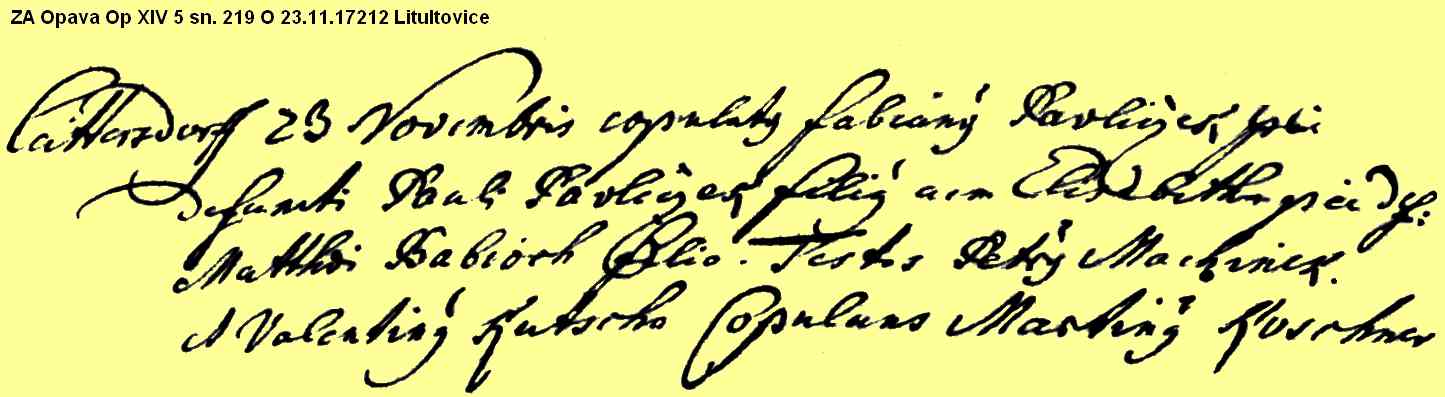 ZA Opava Op XIV 5 sn. 219 O 23.11.17212 Litultovice
23 Novembris copulaty Fabianÿ Pavliczek pii
defuncti Pauli Pavliczek filiÿ cum Elisabetha pie def:
Matthæi Babioch filia. Testes Petrÿ Machinek.
& Valentinÿ Kutscho Copulans Martinÿ Koschner